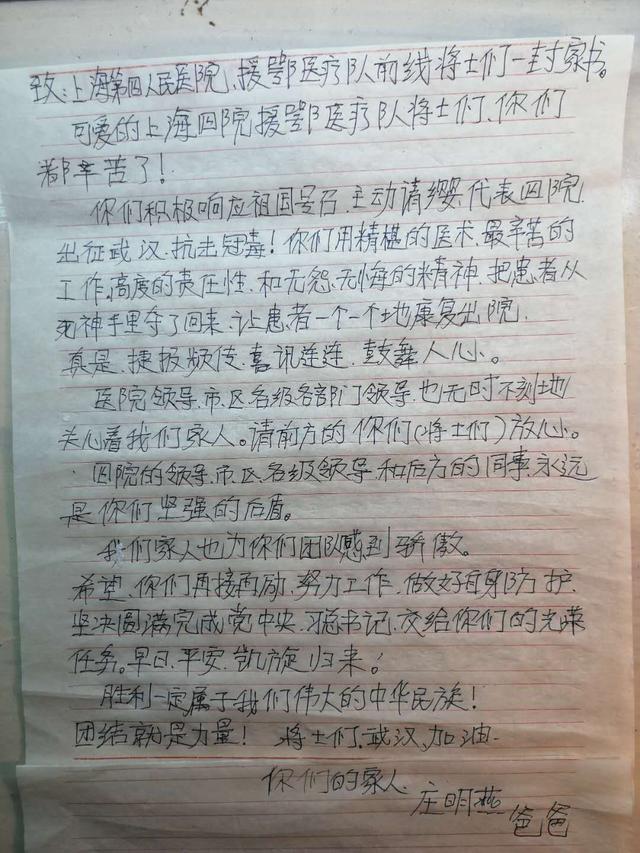 致：上海第四人民医院、援鄂医疗队前线将士们一封家书。
可爱的上海四院援鄂医疗队将士们、你们
都辛苦了！
你们积极响应祖国号召、主动请缨、代表四院、
出征武汉、抗击冠毒！你们用精湛的医术、最辛苦的
工作、高度的责任性、和无怨、无悔的精神、把患者从
死神手里夺了回来、让患者一个一个地康复出院、
真是、捷报频传、喜讯连连、鼓舞人心。
医院领导、市、区各级各部门领导、也无时不刻地
关心着我们家人。请前方的你们（将士们）放心。
四院的领导、市、区、各级领导、和后方的同事、永远
是你们坚强的后盾。
我们家人也为你们团队感到骄傲。
希望、你们再接再励、努力工作、做好自身防护、
坚决圆满完成党中央、习总书记、交给你们的光荣
任务。早日、平安、凯旋归来！
胜利一定属于我们伟大的中华民族！
团结就是力量！ 将士们、武汉、加油
你们的家人
庄明燕
爸爸